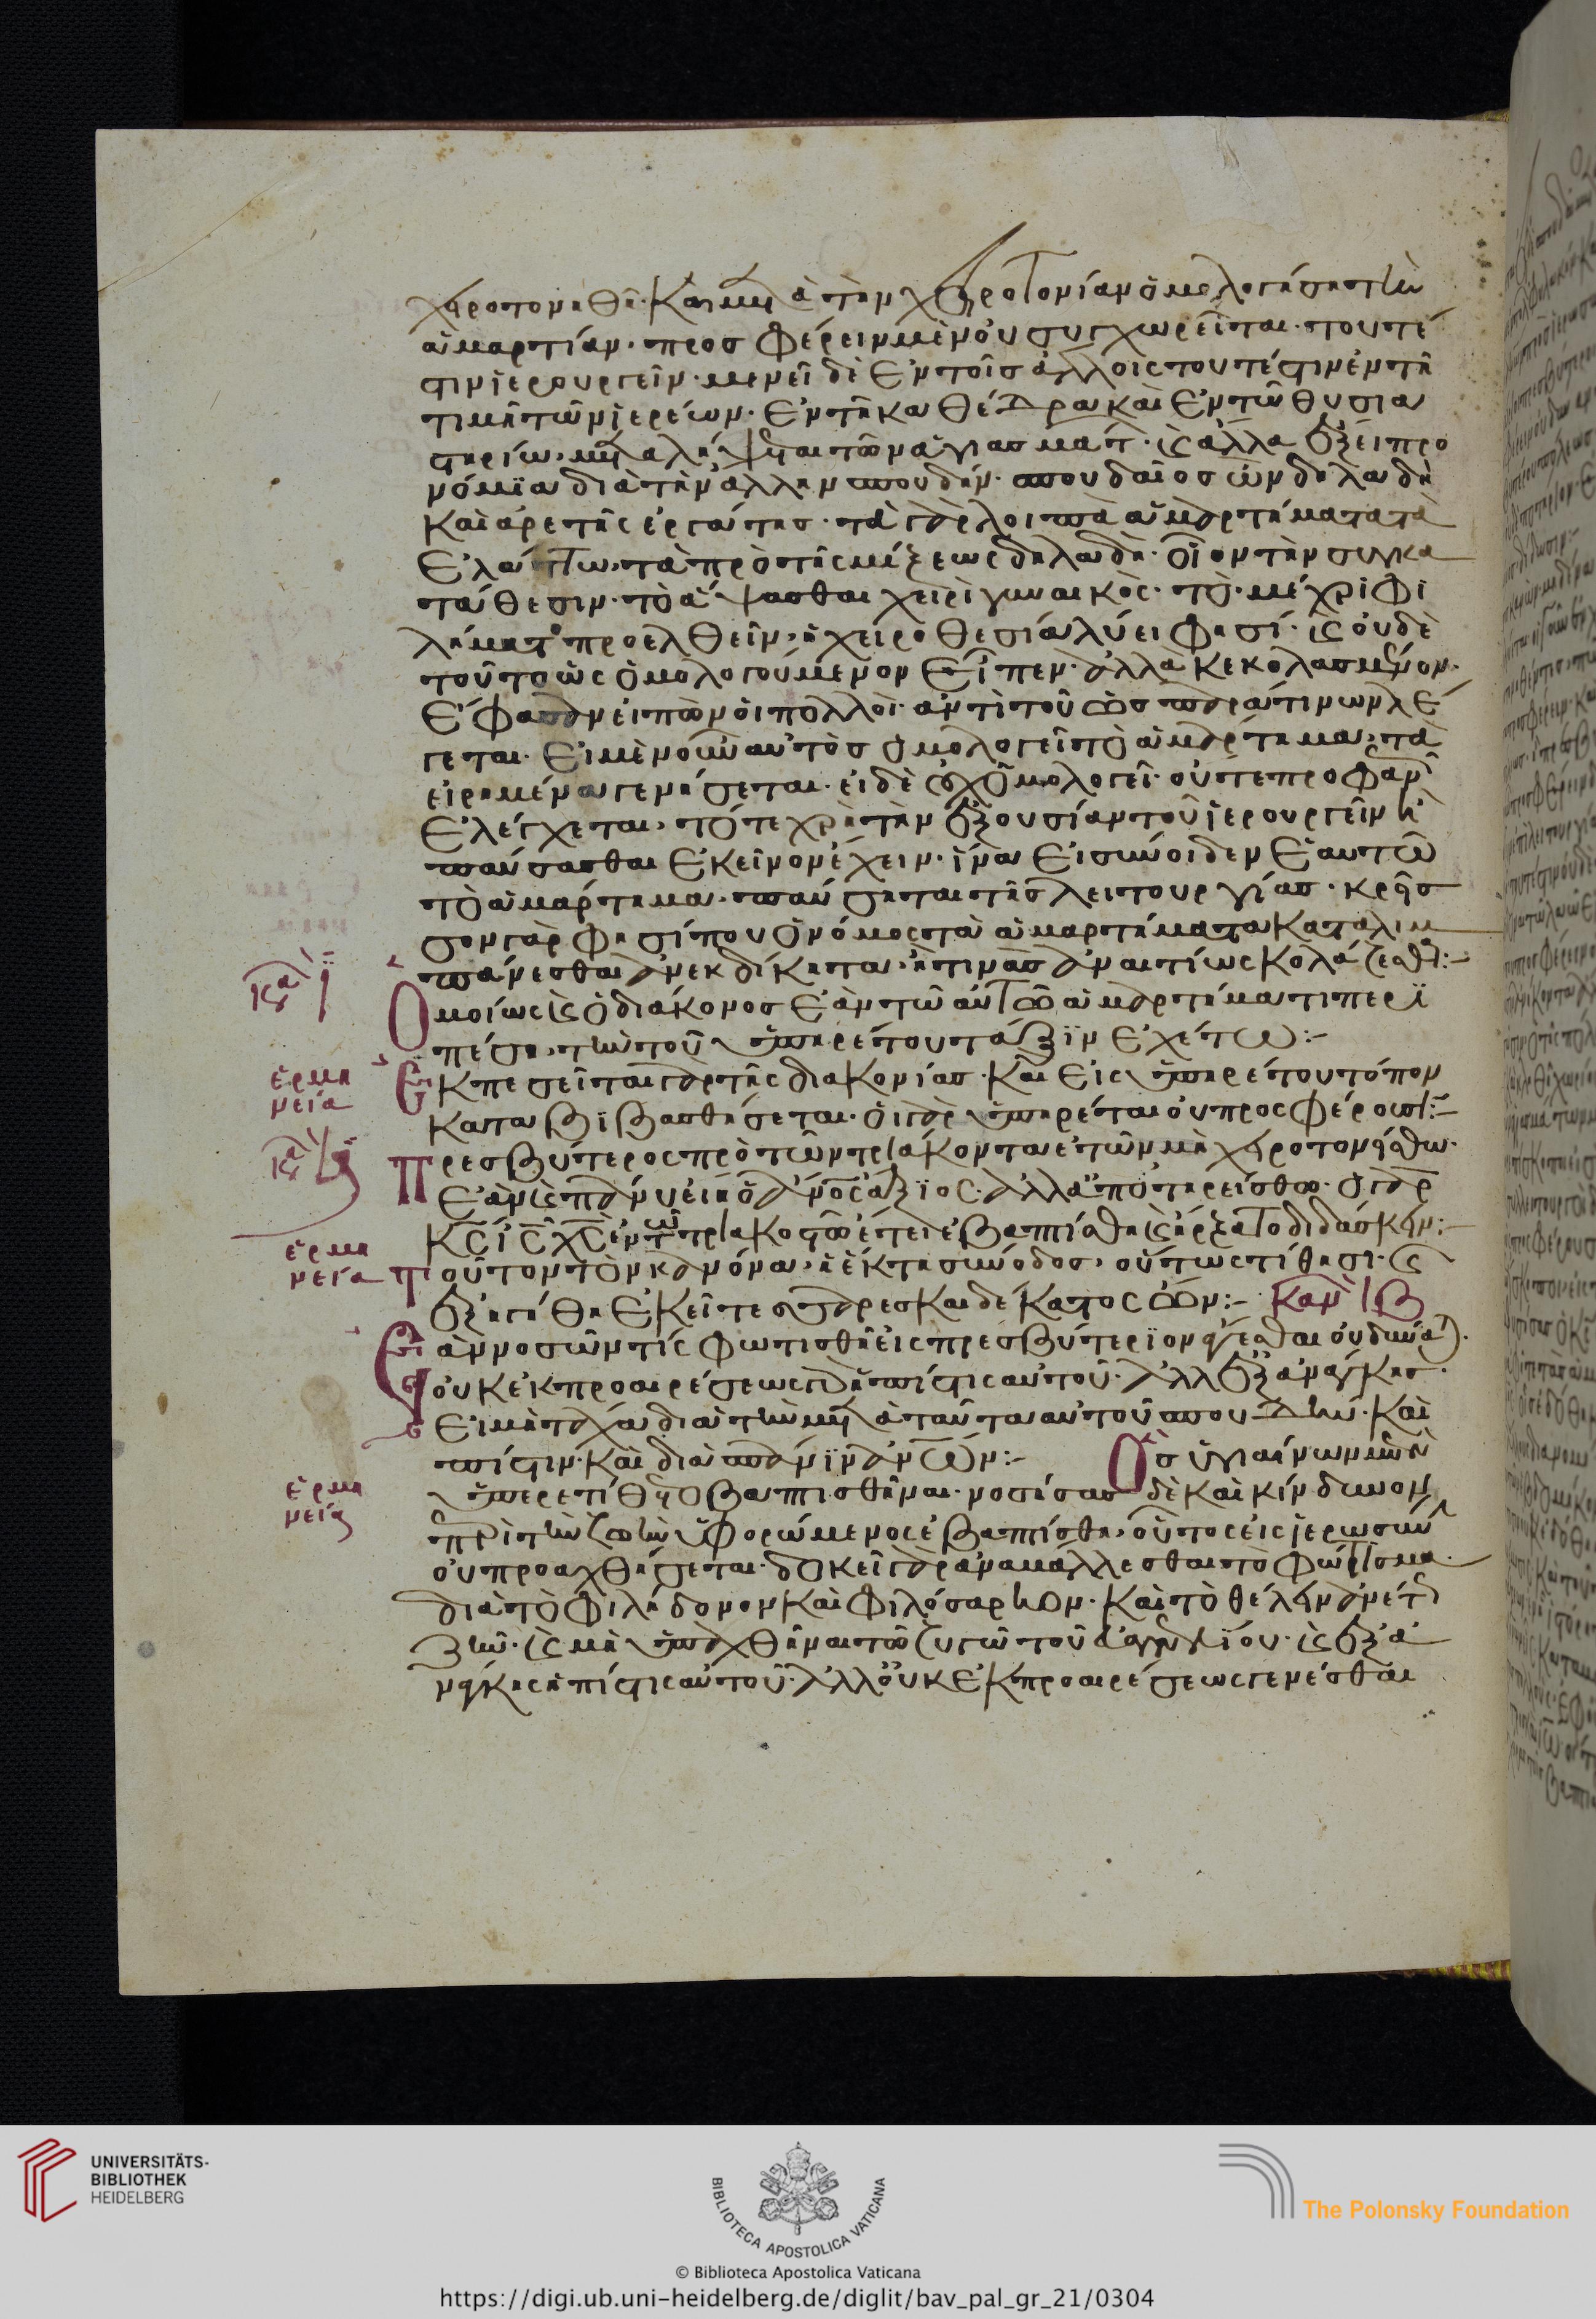 χειροτονηθῆ· καὶ μετὰ τὴν χειροτονίαν ὁμολογήση τὴν
ἁμαρτίαν· προσφέρειν μὲν οὐ συγχωρεῖται· τουτέ
στιν ἱερουργεῖν· μενεῖ δὲ ἐν τοῖς ἄλλοις τουτέστιν ἐν τῆ
τιμῆ τῶν ἱερέων· ἐν τῆ καθέδρα καὶ ἐν τῶ θυσια
στηρίω· μεταλήψεται τῶν ἁγιασμάτ· κ ἄλλα ἕξει προ
νόμϊα διὰ τὴν ἄλλην σπουδήν· σπουδαῖος ὢν δηλαδὴ
καὶ ἀρετῆς ἐργάτης· τὰ γὰρ λοιπὰ ἁμαρτήματα τὰ
ἐλάττω· τὰ πρὸ τῆς μίξεως δηλαδὴ· οἷον τὴν συγκα
τάθεσιν· τὸ ἅψασθαι χειρὶ γυναικὸς· τὸ μέχρι φι
λήματος προελθεῖν, ἡ χειροθεσία λύει φησί· κ οὐδὲ
τοῦτο ὡς ὁμολογούμενον εἶπεν· ἀλλὰ κεκολασμένον·
ἔφασαν εἰπὼν οἱ πολλοὶ· ἀντὶ τοῦ ὡς παρά τινων λέ
γεται· εἰ μὲν οὖν αὐτὸς ὁμολογεῖ τὸ ἁμάρτημα, τὰ
εἰρημένα γενήσεται· εἰ δὲ οὐχ ὁμολογεῖ· οὔτε προφαν
ἐλέγχεται, τότε χρὴ τὴν ἐξουσίαν τοῦ ἱερουργεῖν ἢ
παύσασθαι ἐκεῖνον ἔχειν· ἵνα εἰ σύνοιδεν ἑαυτῶ
τὸ ἁμάρτημα· παύσηται τῆς λειτουργίας· κρεῖσ
σον γὰρ φησί που ὁ νόμος τὰ ἁμαρτήματα καταλιμ
πάνεσθαι ἀνεκδίκητα· ἤ τινας ἀναιτίως κολάζεσθαι:-
κα ϊ
Ὁμοίως κ ὁ διάκονος ἐὰν τῶ αὐτῶ ἁμαρτήματι περϊ
πέση, τὴν τοῦ ὑπηρέτου τάξϊν ἐχέτω:-
ἑρμη
νεία
Ἐκπεσεῖται γὰρ τῆς διακονίας· καὶ εἰς ὑπηρέτου τόπον
καταβϊβασθήσεται· οἱ γὰρ ὑπηρέται οὐ προσφέρουσι:-
κα ια
Πρεσβύτερος πρὸ τῶν τριάκοντα ἐτῶν μὴ χειροτονείσθω·
ἐὰν κ πάνυ εἴη ὁ ἄνος ἄξϊος· ἀλλ' ἀποτηρείσθω· ὁ γὰρ
κς ις χς ἐν τῶ τριακοστῶ ἔτει ἐβαπτίσθη κ ἤρξατο διδάσκειν:-
ἑρμη
νεία
Τοῦτον τὸν κανόνα, ἡ ἕκτη σύνοδος, οὕτως τίθησι· κ
ἐξηγήθη ἐκεῖ τεσσαρεσκαιδέκατος ὤν:- Κανὼν ιβ
Ἐὰν νοσῶν τίς φωτισθῆ εἰς πρεσβύτερϊον ἄγεσθαι οὐ δύναται·
οὐκ ἐκ προαιρέσεως γὰρ ἡ πίστις αὐτοῦ· ἀλλ' ἐξ ἀνάγκης·
εἰ μὴ τάχα διὰ τὴν μετὰ ταῦτα αὐτοῦ σπουδὴν· καὶ
πίστιν· καὶ διὰ σπάνϊν ἀνων:- Ὃς ὑγιαίνων μὲν
ἑρμη
νεία
ὑπερετίθετο βαπτισθῆναι· νοσήσας δὲ καὶ κίνδυνον
περὶ τὴν ζωὴν ὑφορώμενος ἐβαπτίσθη, οὗτος εἰς ἱερωσύν
οὐ προαχθήσεται· δοκεῖ γὰρ ἀναβάλλεσθαι τὸ φώτισμα·
διὰ τὸ φιλήδονον καὶ φιλόσαρκον· καὶ τὸ θέλειν ἀνέτ
ζῆν· κ μὴ ὑπαχθῆναι τῶ ζυγῶ τοῦ εὐαγγελίου· κ ἐξ ἀ
νάγκης ἡ πίστις αὐτοῦ· ἀλλ' οὐκ ἐκ προαιρέσεως γενέσθαι
UNIVERSITÄTS-
BIBLIOTHEK
HEIDELBERG
BIBLIOTECA APOSTOLICA VATICANA
The Polonsky Foundation
© Biblioteca Apostolica Vaticana
https://digi.ub.uni-heidelberg.de/diglit/bav_pal_gr_21/0304